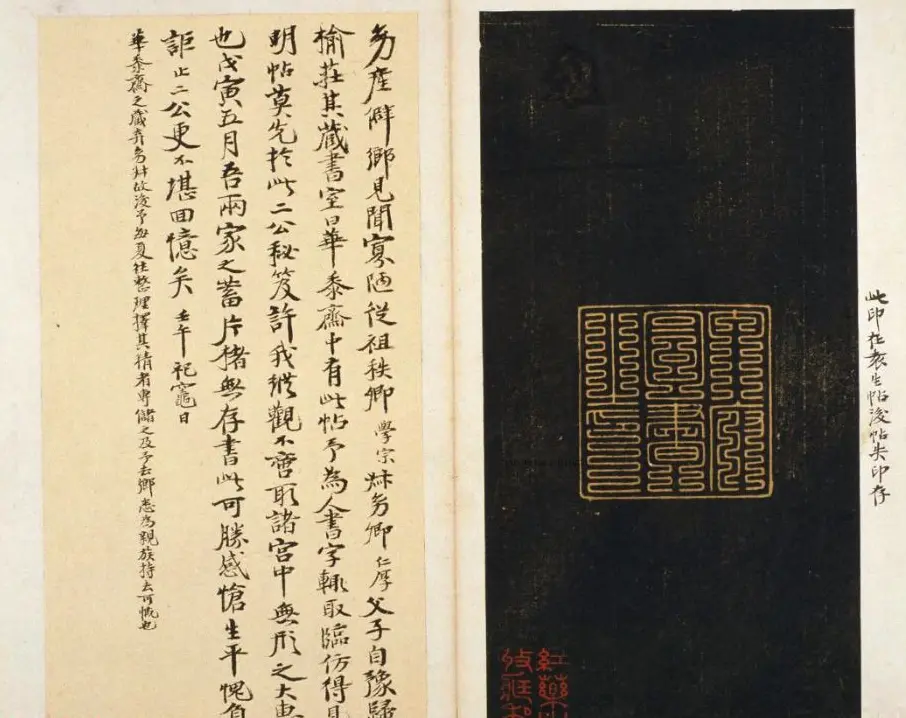 此印在袁生帖後帖失印存
紅藥
幼產僻鄉見聞寡陋從祖秩卿學宗叔幼卿仁厚父子自豫歸
榆莊其藏書室曰華黍齋中有此帖予為人書字輒取臨仿得見
明帖莫先於此二公秘笈許我縱觀不啻取諸宮中無形之大惠
也戊寅五月吾兩家之蓄片楮無存書此可勝感愴生平愧負
詎止二公更不堪回憶矣 壬午祀竈日
華黍齋之藏弆幼耕故後予每夏往整理擇其精者專儲之及予去鄉悉為親族持去可慨也